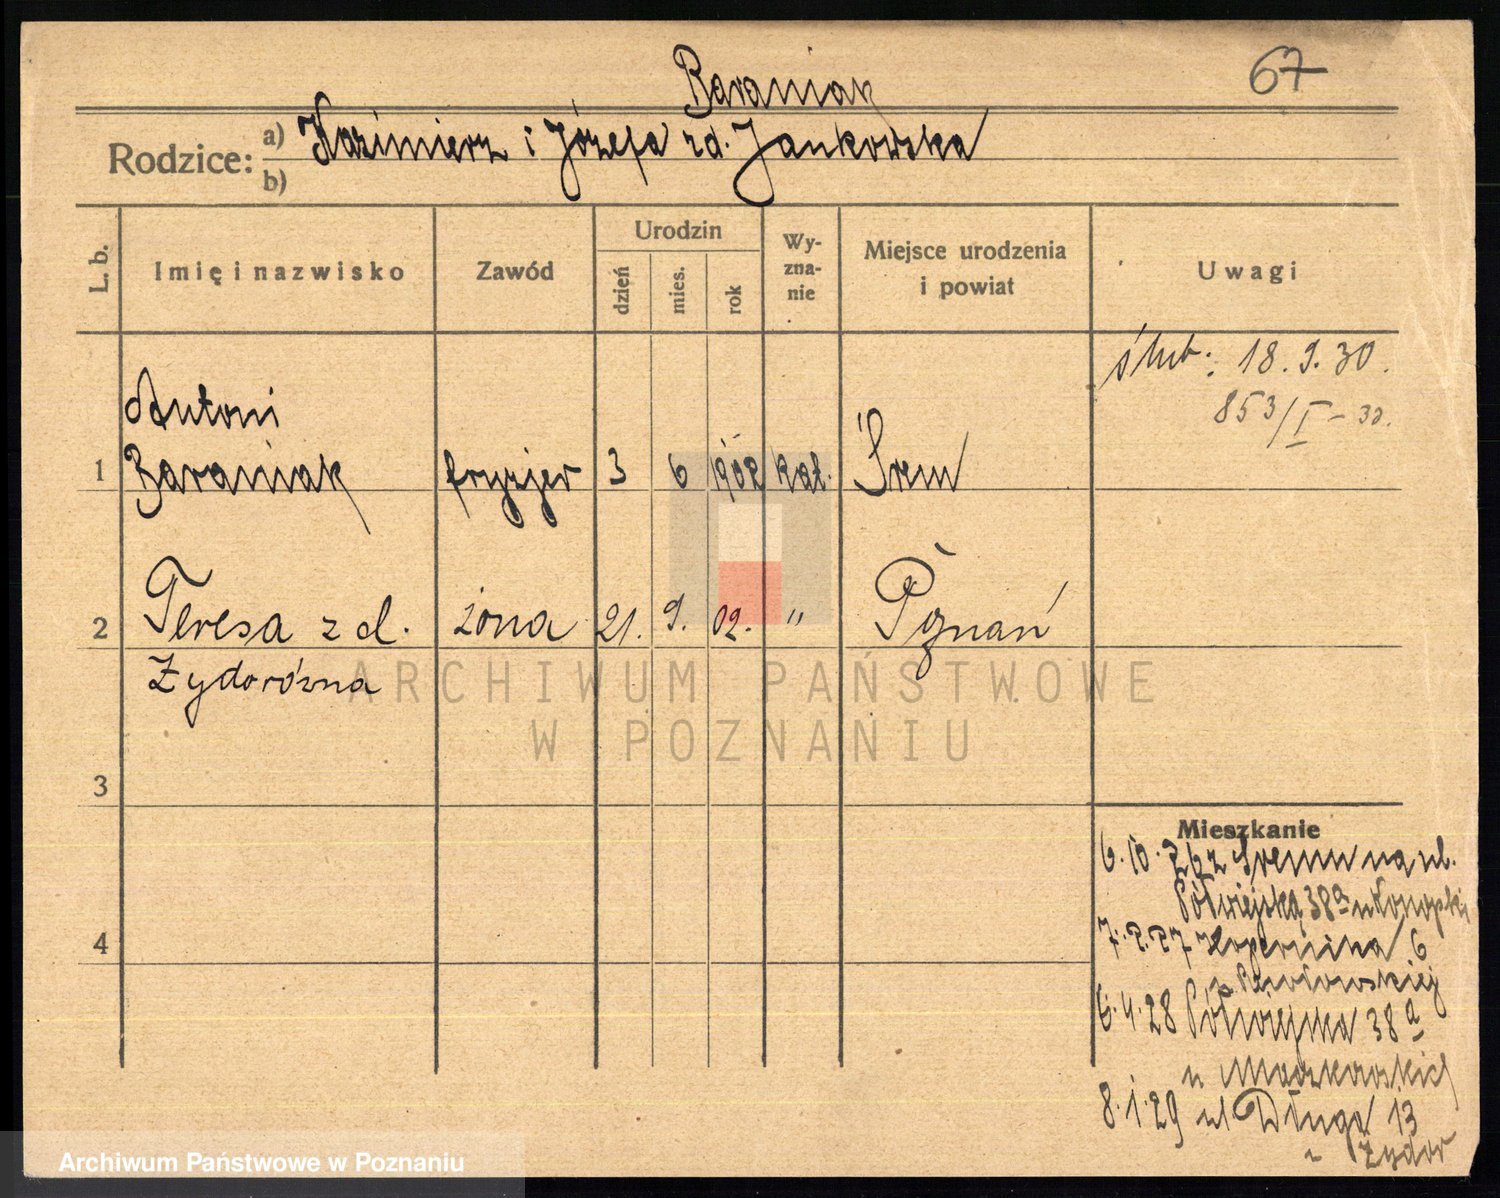 67
Baraniak
Rodzice: a) Kazimierz i Józefa zd. Jankowska
b)
L. b. Imię i nazwisko Zawód Urodzin dzień mies. rok Wy-zna-nie Miejsce urodzenia i powiat Uwagi
ślub: 18. 9. 30.
853/I - 30.
Antoni
1 Baraniak fryzjer 3 6 1902 kat. Śrem
2 Teresa z d. żona 21. 9. 02. " Poznań
Żydorówna
ARCHIWUM PAŃSTWOWE
W POZNANIU
3
Mieszkanie
6.10.26 z Śremu na ul.
Półwiejską 38a u Konopki
4
7.2.27 Kopernika 6
6.4.28 Półwiejska 38a
u
8.1.29 ul Długa 13
u Żydor
Archiwum Państwowe w Poznaniu